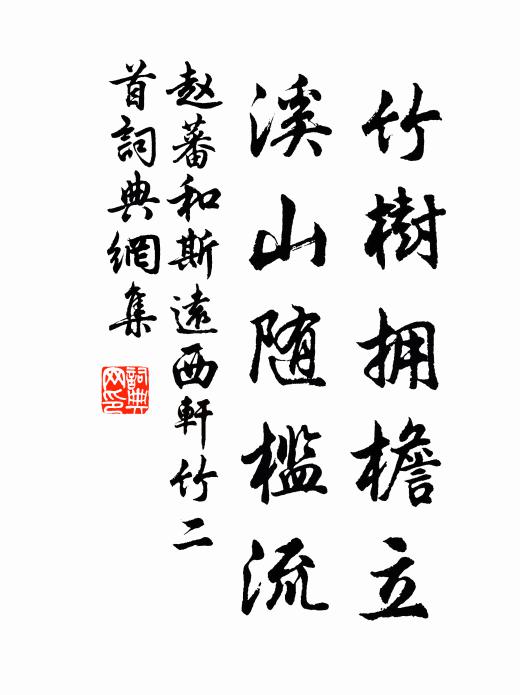 竹樹拥檐立
溪山随槛流
赵蕃和斯遠西軒竹二
首詞典網集
詞典
网印